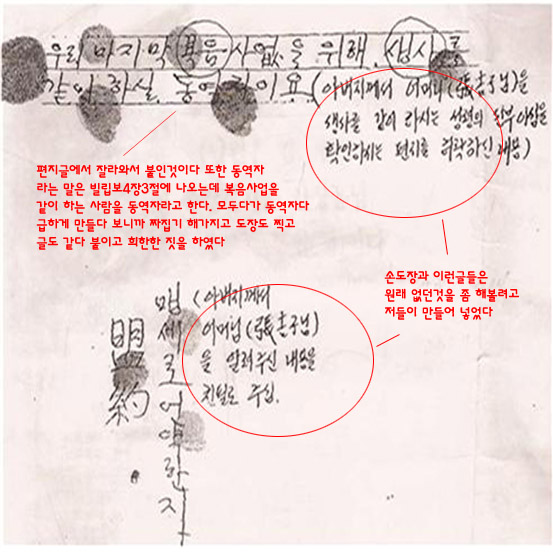 우리 마지막 복음사업을 위해. 생사를
같이 하실 동역자이요. (아버지께서 어머니(張吉子님)을
생사를 같이 하시는 성령의 신부 아심을
확인하시는 편지를 허락하신 내용)
편지글에서 잘라와서 붙인것이다 또한 동역자
라는 말은 빌립보4장3절에 나오는데 복음사업을
같이 하는 사람을 동역자라고 한다. 모두다가 동역자다
급하게 만들다 보니까 짜집기 해가지고 도장도 찍고
글도 갖다 붙이고 희한한 짓을 하였다
손도장과 이런글들은
원래 없던것을 좀 해볼려고
저들이 만들어 넣었다
盟約
맹세로 언약한지
(아버지께서
어머님(張吉子님)
을 알려주신 내용을
친필로 주심.